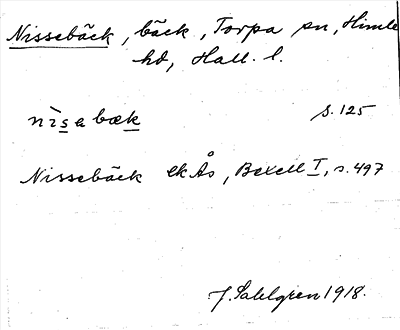 Nissebäck, bäck, Torpa sn, Himle
hd, Hall. l.
nìsebæk s. 125
Nissebäck ek Ås, Bexell I, s. 497
J. Sahlgren 1918.